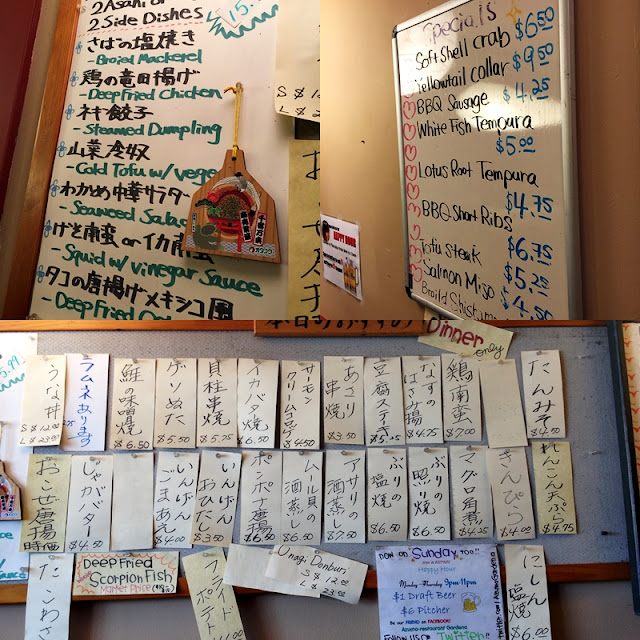 2 Asahi or
2 Side Dishes
15.
さばの塩焼き
- Broied Mackerel
鶏の竜田揚げ
- Deep Fried Chicken
ネギ餃子
- Steamed Dumpling
山菜冷奴
- Cold Tofu w/ vege
わかめ中華サラダ
- Seaweed Salad
げそ南蛮 or イカ南蛮
- Squid w/ vinegar Sauce
タコの唐揚げメキシコ風
- Deep Fried
Specials
Soft Shell crab $6.50
Yellowtail collar $9.50
BBQ Sausage $4.25
White Fish Tempura
$5.00
Lotus Root Tempura
$4.75
BBQ Short Ribs
$6.75
Tofu steak
$5.25
Salmon Miso
$4.50
HAPPY HOUR
本日のおすすめ
Dinner
only
うな丼
S $12.00
L $23.00
フムネあります
鮭の味噌焼
$6.50
ゲソぬた
$5.50
貝柱串焼
$5.75
イカバタ焼
$6.50
サーモンクリームコロッケ
$4.50
あさり串焼
$3.50
豆腐ステーキ
$5.25
なすのはさみ揚
$4.75
鶏南蛮
$7.00
たんみそ
$4.50
おこぜ唐揚
時価
じゃがバター
$4.50
いんげんごまあえ
$4.00
いんげんおひたし
ポンポナ唐揚
$6.50
ムール貝の酒蒸し
アサリの酒蒸し
$7.50
ぶりの塩焼
$6.50
ぶりの照り焼
$6.50
マグロ角煮
$4.25
きんぴら
$4.00
れんこん天ぷら
$4.75
たこわさ
Deep Fried
Scorpion Fish
Market Price
フライドポテト
Unagi Donburi
S $12.00
$23.00
now on "Sunday" too!!
Happy Hour
Monday - Thursday 9pm-11pm
$1 Draft Beer
$6 Pitcher
Be our FRIEND on FACEBOOK!
Follow us
Twitter
にしん塩焼
$6.00